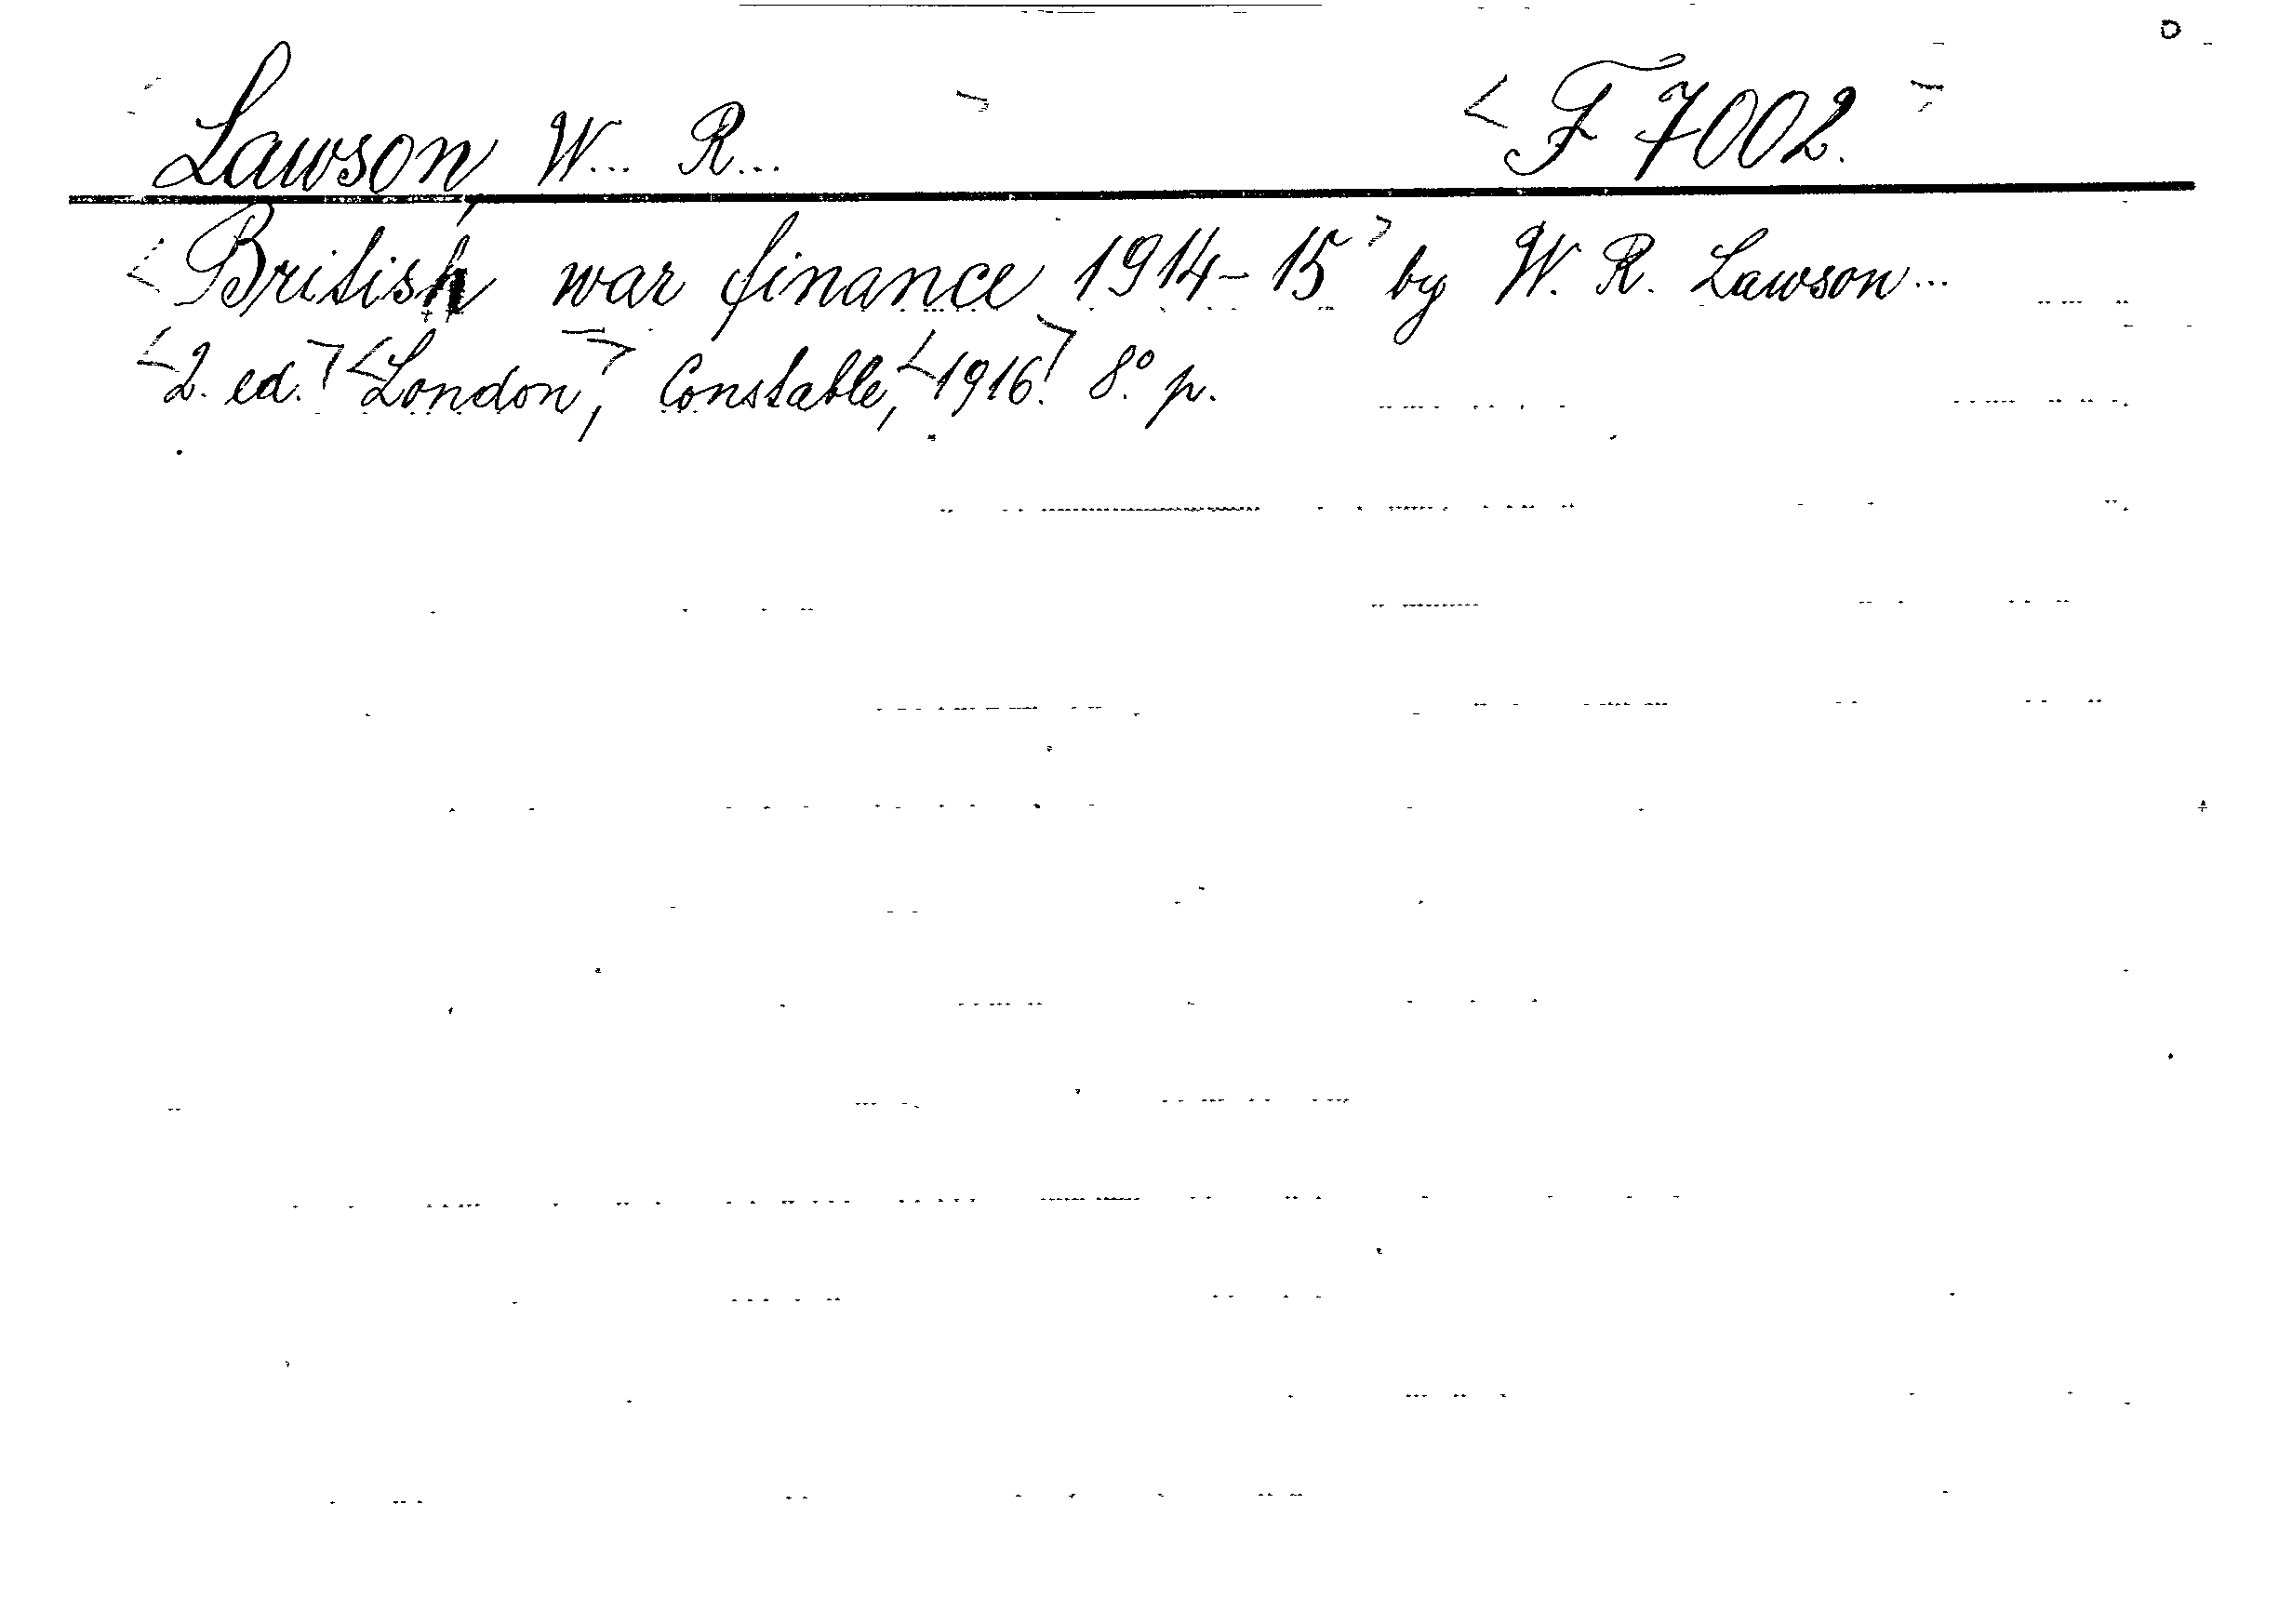 Lawson, W... R... < F 7002. >
< British war finance 1914-15 > by W. R. Lawson...
< 2. ed. > < London, > Constable, < 1916. > 8.° p.